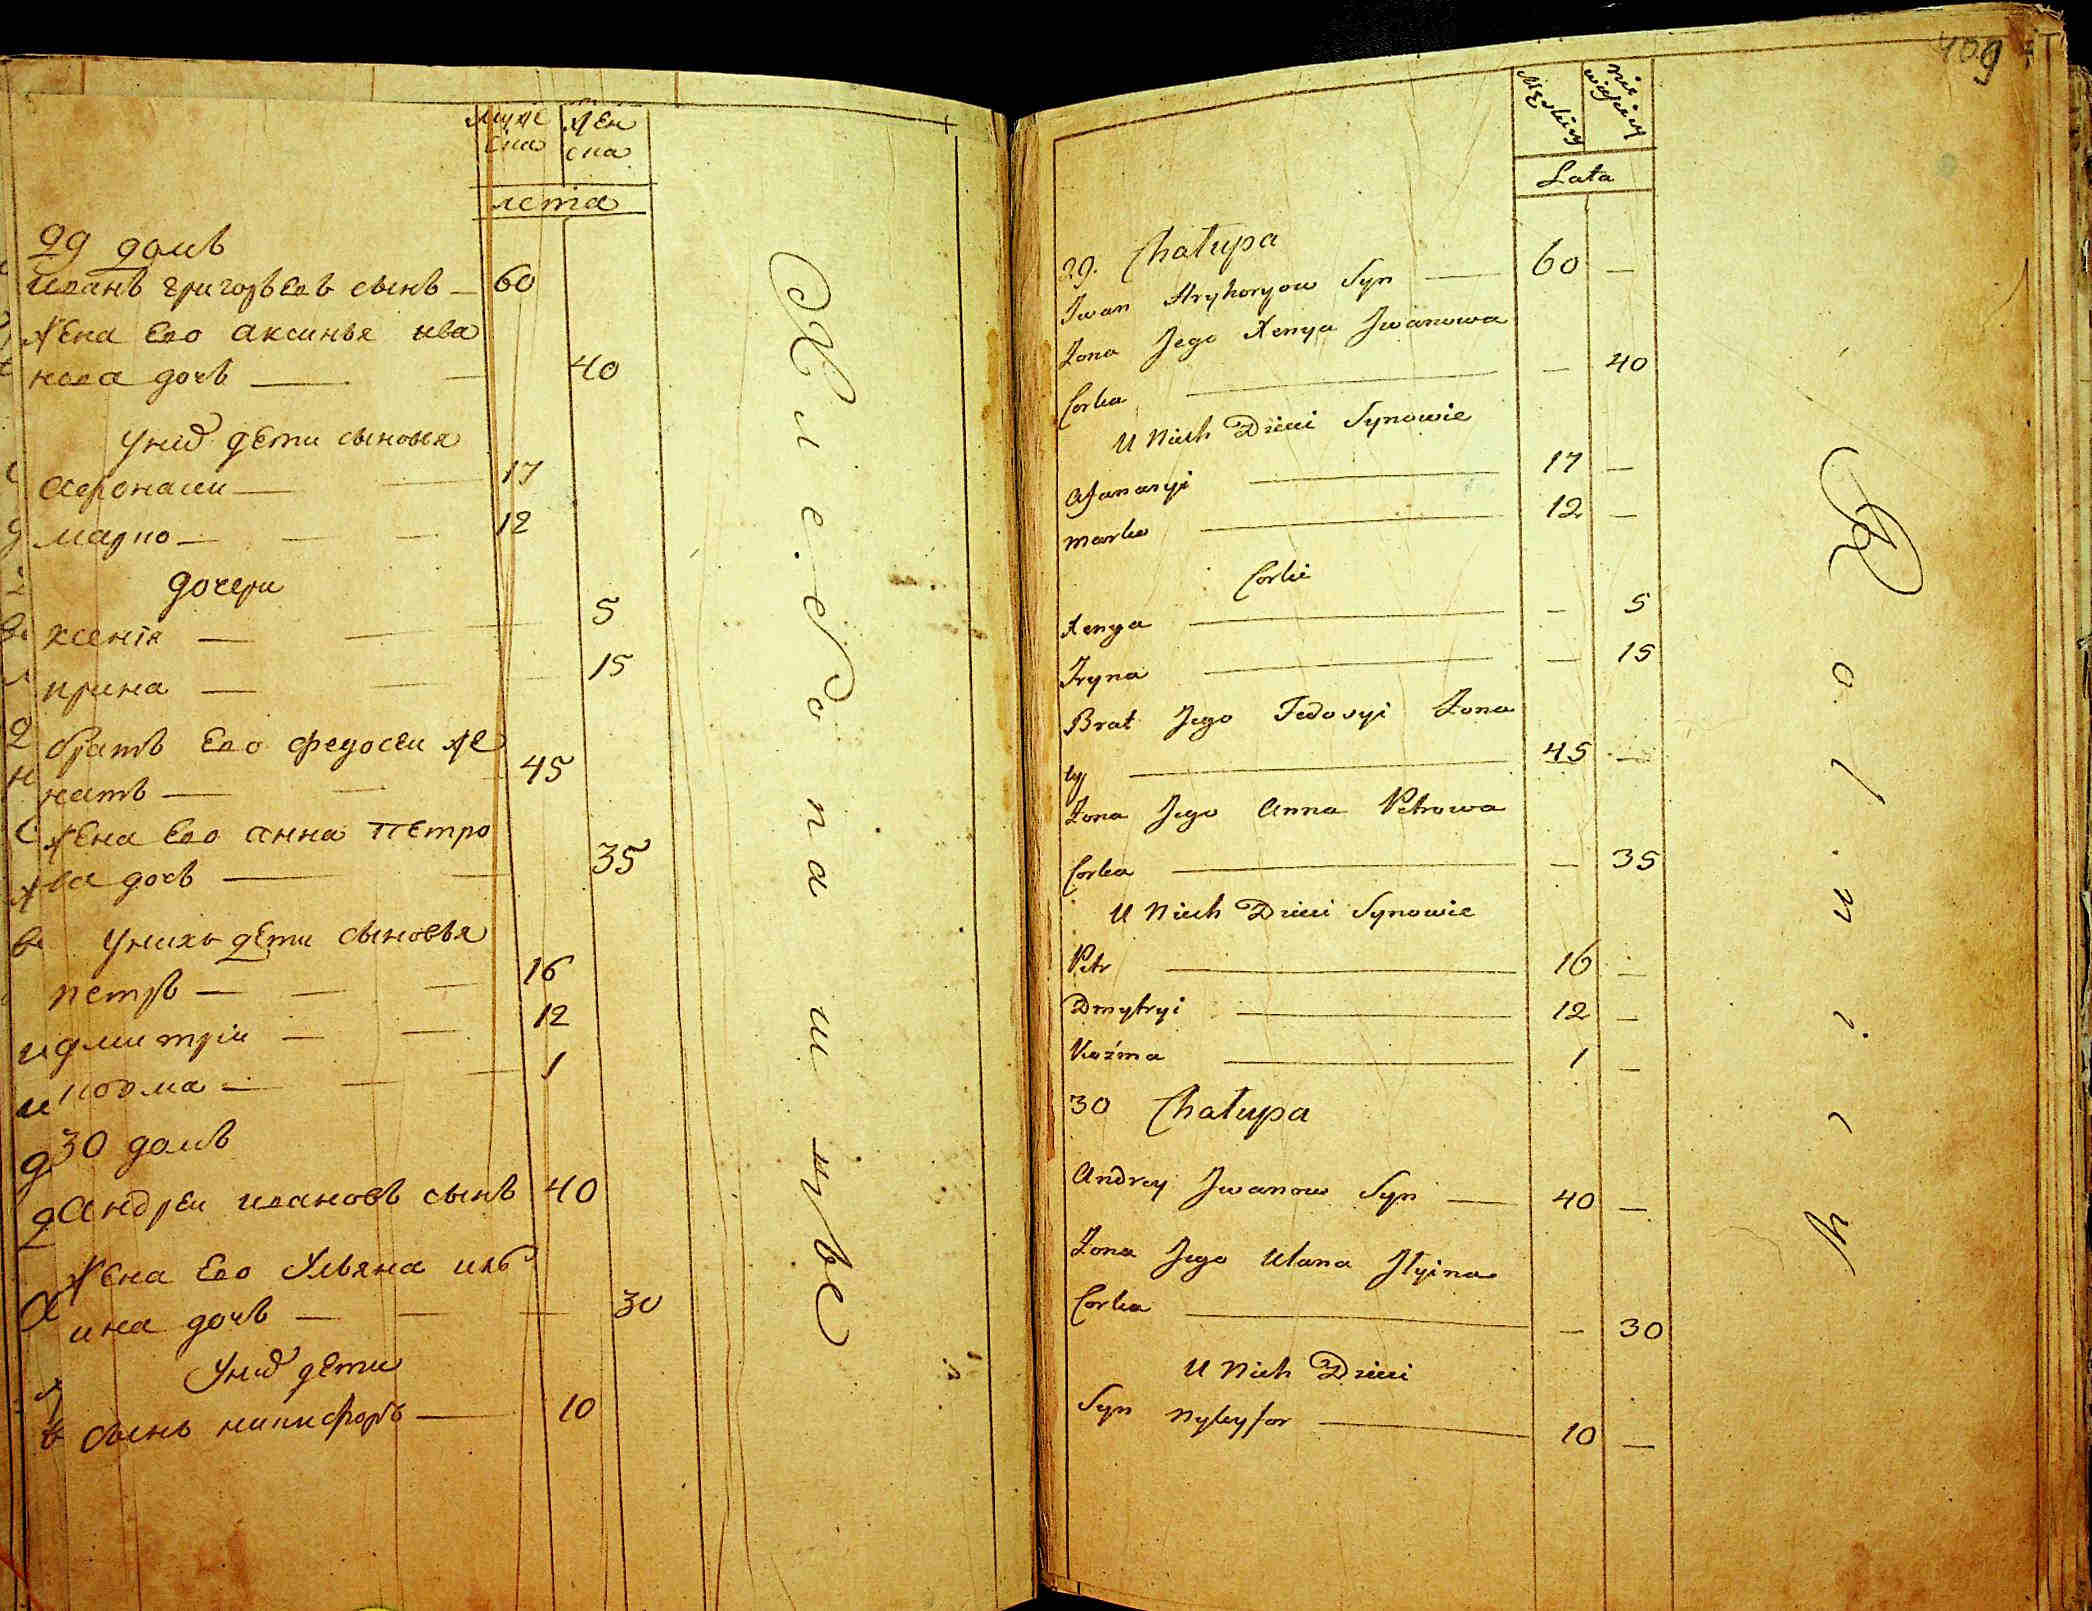 мужеска женска
лета
29 домъ
иванъ григорьевъ сынъ — 60
жена Ево аксинья ива
нова дочь — 40
у них дети сыновья
афонасеи — 17
марко — 12
дочери
ксенiя — 5
ирина — 15
братъ Ево федосеи же
натъ — 45
жена Ево анна петро
ва дочь — 35
у нихъ дети сыновья
петръ — 16
дмитрiи — 12
козма — 1
30 домъ
андреи ивановъ сынъ 40
жена Ево Ульяна иль
ина дочь — 30
у них дети
сынъ никифоръ — 10
Хлебопашцы
409
Męskiey niewieściey
Lata
29. Chałupa
Iwan Hryhoryow Syn — 60 —
Zona Jego Xenya Jwanowa
Corka — — 40
U Nich Dzieci Synowie
Afanasyi — 17 —
Marko — 12 —
Corki
Xenya — — 5
Iryna — — 15
Brat Jego Fedosyi Zona
ty — 45 —
Zona Jego Anna Petrowa
Corka — — 35
U Nich Dzieci Synowie
Petr — 16 —
Dmytryi — 12 —
Koźma — 1 —
30 Chałupa
Andrey Jwanow Syn — 40 —
Zona Jego Ulana Jłyina
Corka — — 30
U Nich Dzieci
Syn Nykyfor — 10 —
Rolnicy